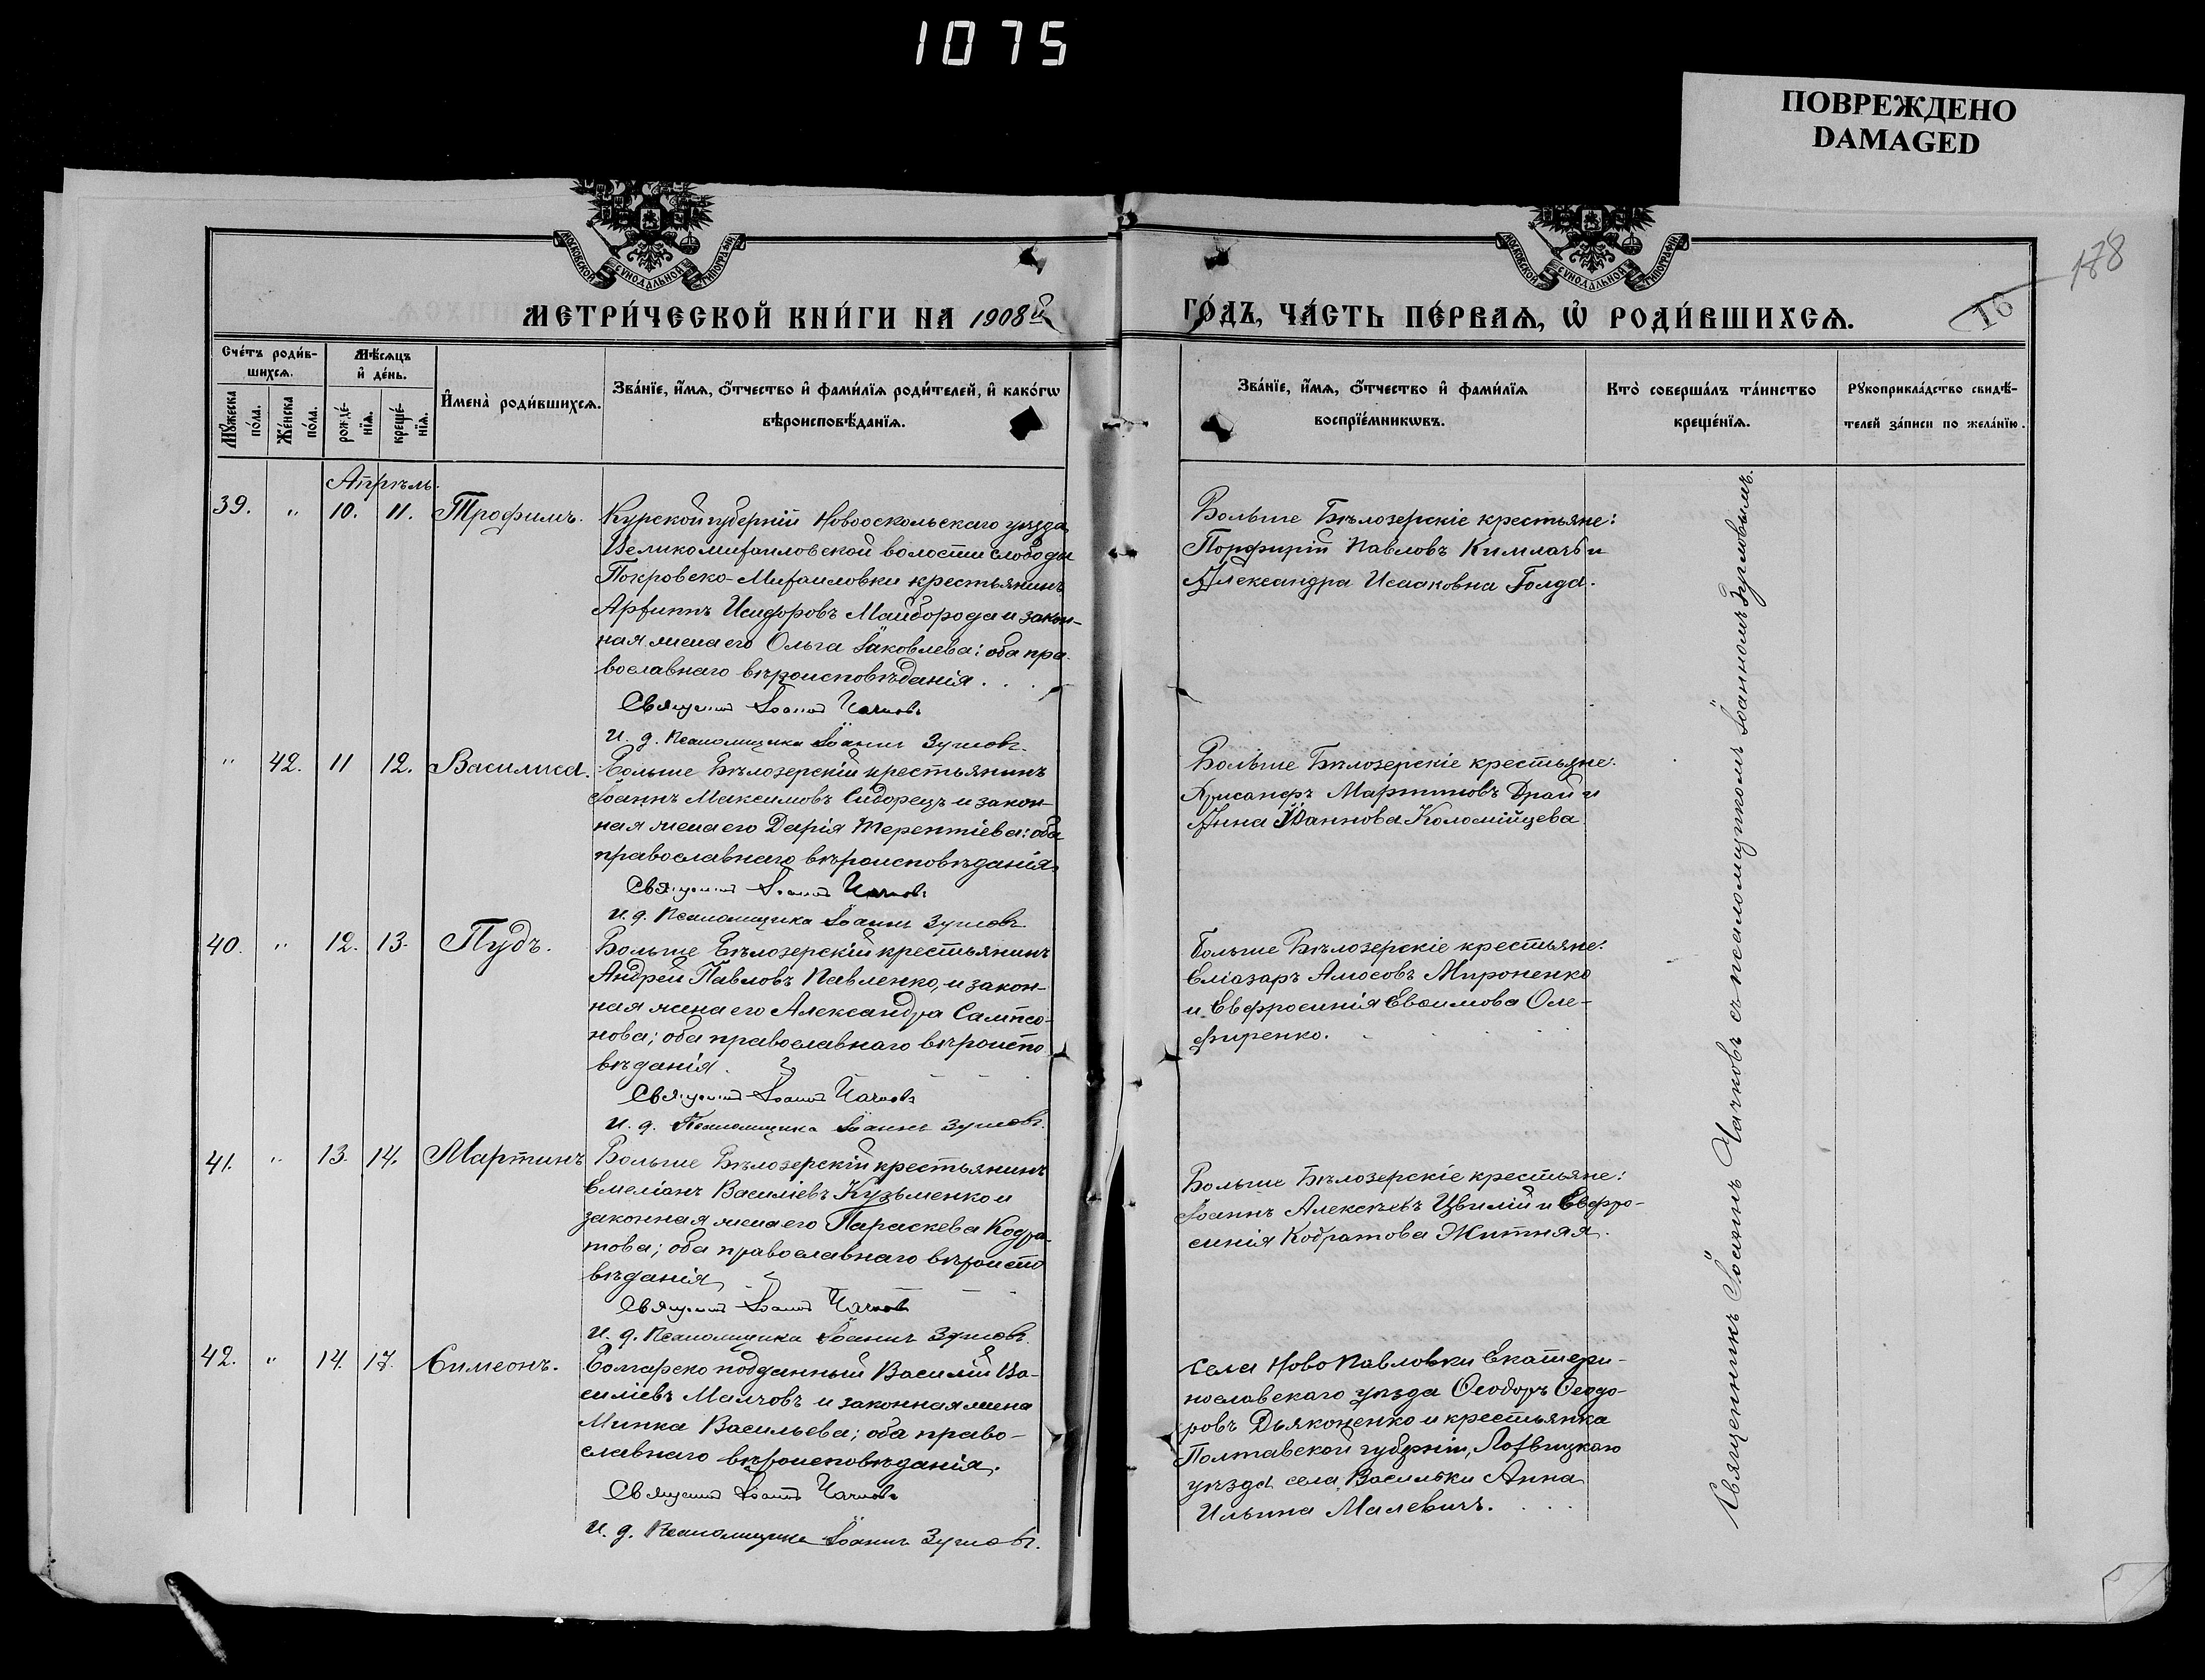 1075
ПОВРЕЖДЕНО
DAMAGED
178
16
МОСКОВСКОЙ СУНОДАЛЬНОЙ ТИПОГРАФІИ
МОСКОВСКОЙ СУНОДАЛЬНОЙ ТИПОГРАФІИ
МЕТРИ́ЧЕСКОЙ КНИ́ГИ НА 1908й
ГО́ДЪ, ЧА́СТЬ ПЕ́РВАѦ, Ѡ҆ РОДИ́ВШИХСѦ.
Сче́тъ роди́в-
шихсѧ.
Мѣ́сѧцъ
и҆ де́нь.
Мꙋ́жеска
по́ла.
Же́нска
по́ла.
рожде́-
нїѧ.
креще́-
нїѧ.
И҆мена̀ роди́вшихсѧ.
Зва́нїе, и҆́мѧ, ѻ҆́тчество и҆ фами́лїѧ роди́телей, и҆ како́гѡ
вѣроисповѣ́данїѧ.
Зва́нїе, и҆́мѧ, ѻ҆́тчество и҆ фами́лїѧ
воспрїе́мникѡвъ.
Кто̀ соверша́лъ та́инство
креще́нїѧ.
Рꙋкоприкла́дство свидѣ́-
телей за́писи по жела́нїю.
Апрѣль.
39. " 10. 11. Трофимъ.
Курской губерніи Новооскольскаго уѣзда
Великомихаиловской волости слободы
Покровско-Михаиловки крестьянинъ
Архиппъ Исидоровъ Майборода и закон-
ная жена его Ольга Іаковлева; оба пра-
вославнаго вѣроисповѣданія.
Священникъ Іоаннъ Чачковъ
И. д. Псаломщика Іоаннъ
Больше Бѣлозерскіе крестьяне:
Порфирій Павловъ и
Александра Исааковна Голда.
" 42. 11 12. Василиса.
Больше Бѣлозерскій крестьянинъ
Іоаннъ Максимовъ Сидорецъ и закон-
ная жена его Дарія Терентіева; оба
православнаго вѣроисповѣданія.
Священникъ Іоаннъ Чачковъ
И. д. Псаломщика Іоаннъ
Больше Бѣлозерскіе крестьяне:
Мартиновъ Драй и
Анна Іоаннова Коломійцева
40. " 12. 13. Пудъ.
Больше Бѣлозерскій крестьянинъ
Андрей Павловъ Павленко, и закон-
ная жена его Александра Сампсо-
нова; оба православнаго вѣроиспо
вѣданія.
Священникъ Іоаннъ Чачковъ
И. д. Псаломщика Іоаннъ
Больше Бѣлозерскіе крестьяне:
Еліазаръ Амосовъ Мироненко
и Евфросинія Евѳимова Оле-
фиренко.
41. " 13. 14. Мартинъ
Больше Бѣлозерскій крестьянинъ
Емеліанъ Василіевъ Кузьменко и
законная жена его Параскева Кодра-
това; оба православнаго вѣроиспо
вѣданія
Священникъ Іоаннъ Чачковъ
И. д. Псаломщика Іоаннъ
Больше Бѣлозерскіе крестьяне:
Іоаннъ Алексѣевъ Цвилій и Евфро-
синія Кодратова Житняя.
42. " 14. 17. Симеонъ.
Болгарско подданный Василій Ва-
силіевъ Малчовъ и законная жена
Минка Васильева; оба право-
славнаго вѣроисповѣданія.
Священникъ Іоаннъ Чачковъ
И. д. Псаломщика Іоаннъ
села Ново Павловки Екатери-
нославскаго уѣзда Ѳеодоръ Ѳеодо-
ровъ Дьяконенко и крестьянка
Полтавской губерніи, Лохвицкаго
уѣзда села Васильки Анна
Ильина Малевичъ.
Священникъ Іоаннъ Чачковъ съ псаломщикомъ Іоанномъ